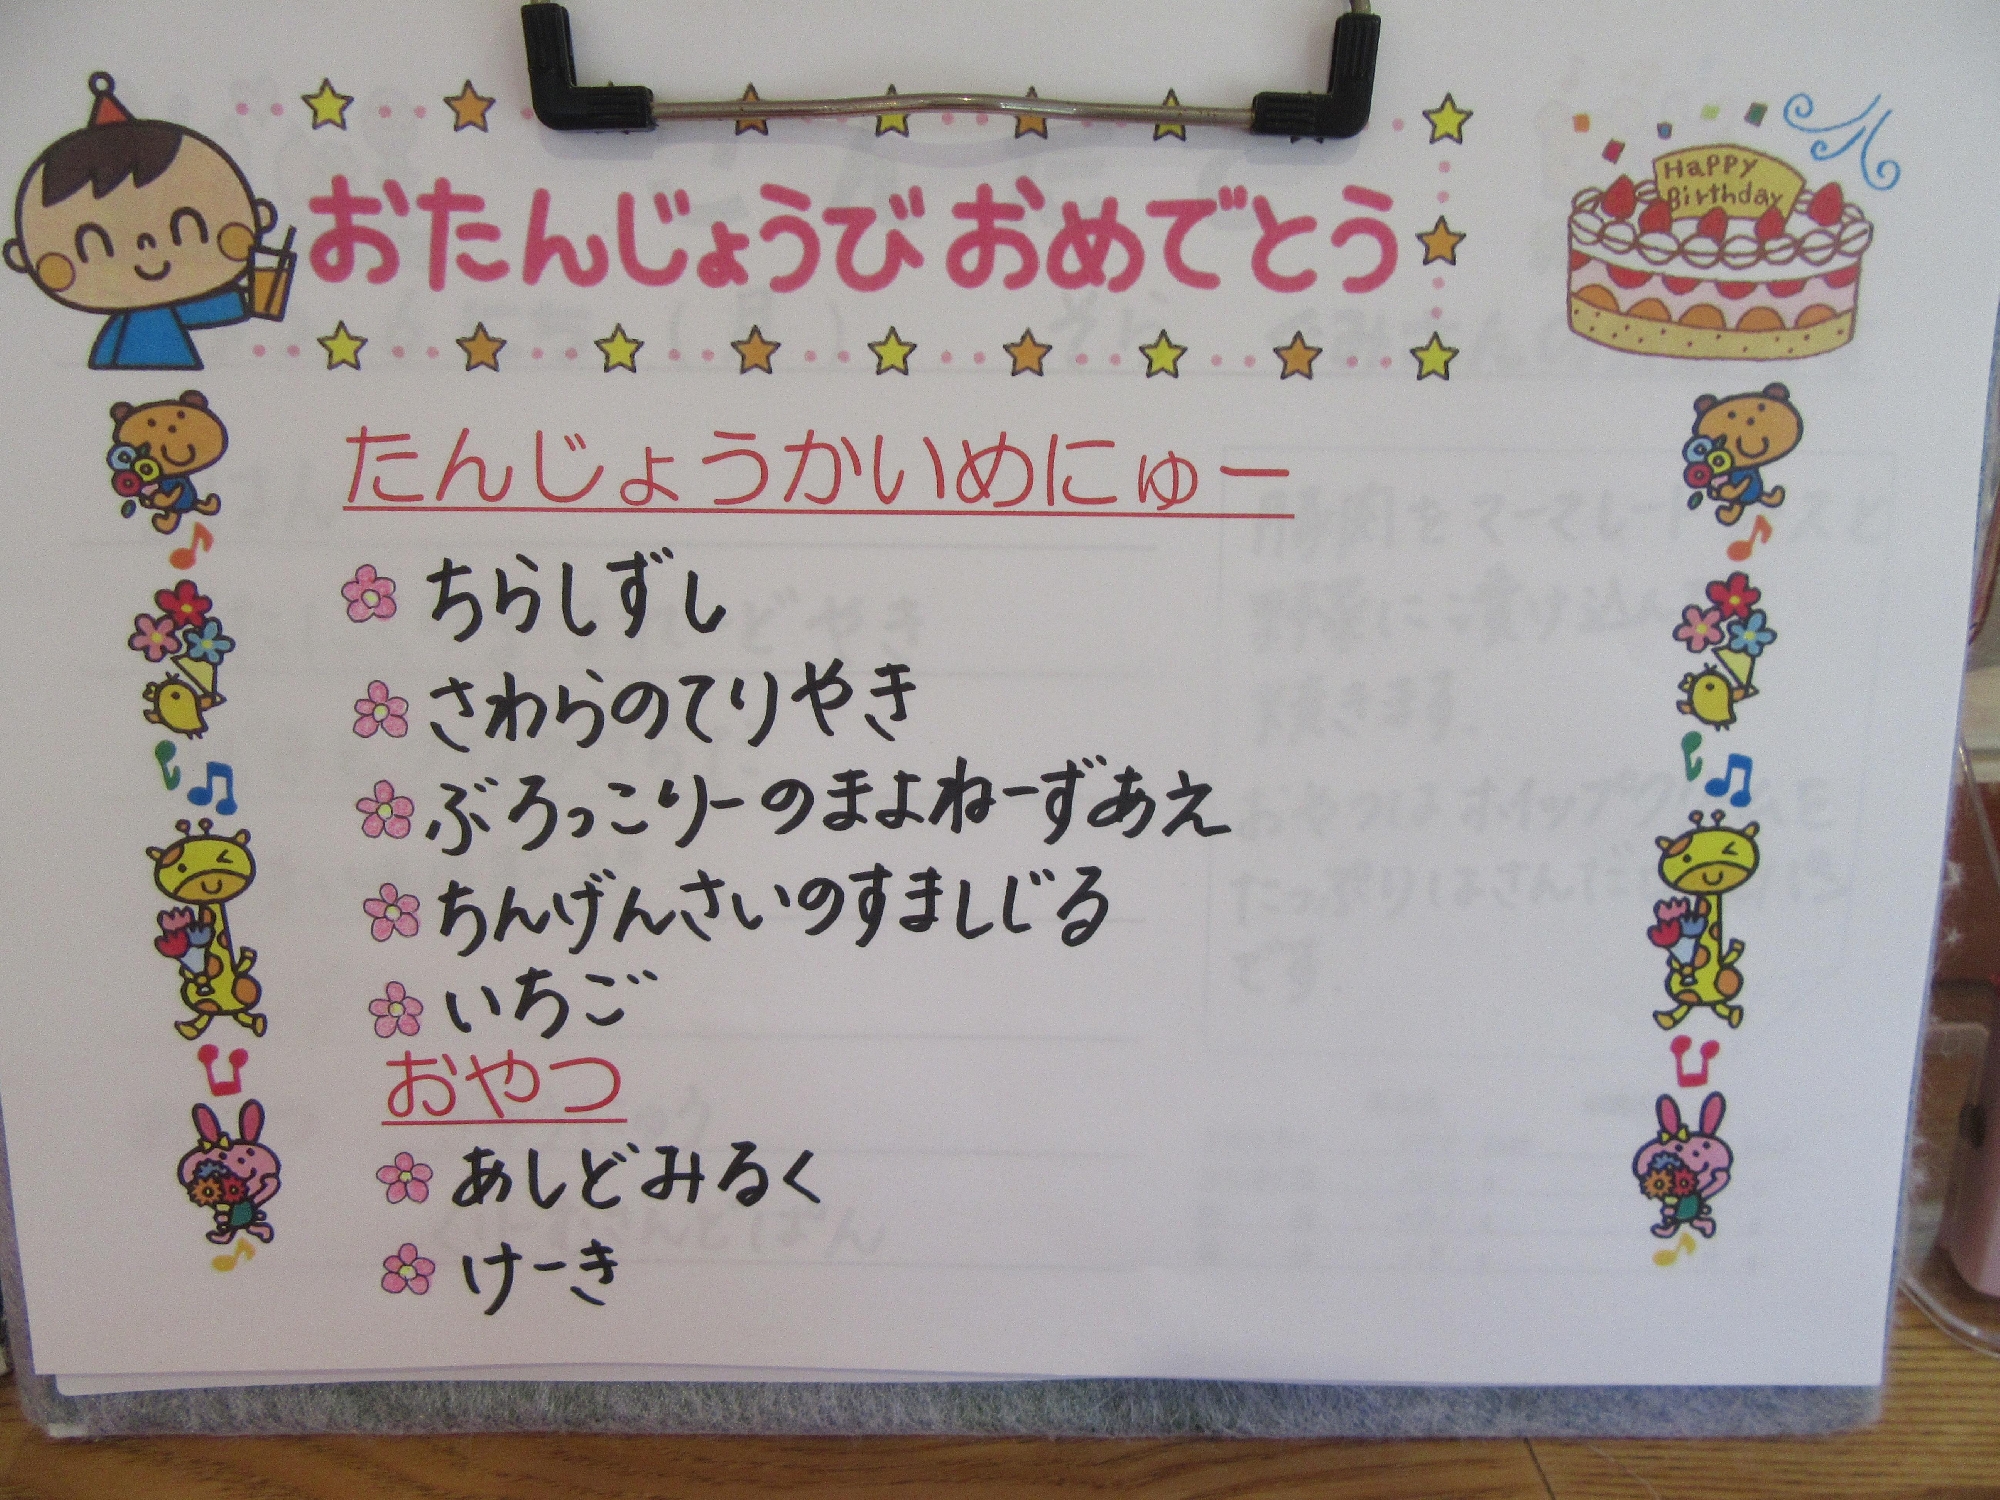 おたんじょうび おめでとう
Happy
Birthday
たんじょうかいめにゅー
ちらしずし
さわらのてりやき
ぶろっこりーのまよねーずあえ
ちんげんさいのすましじる
いちご
おやつ
あしどみるく
けーき